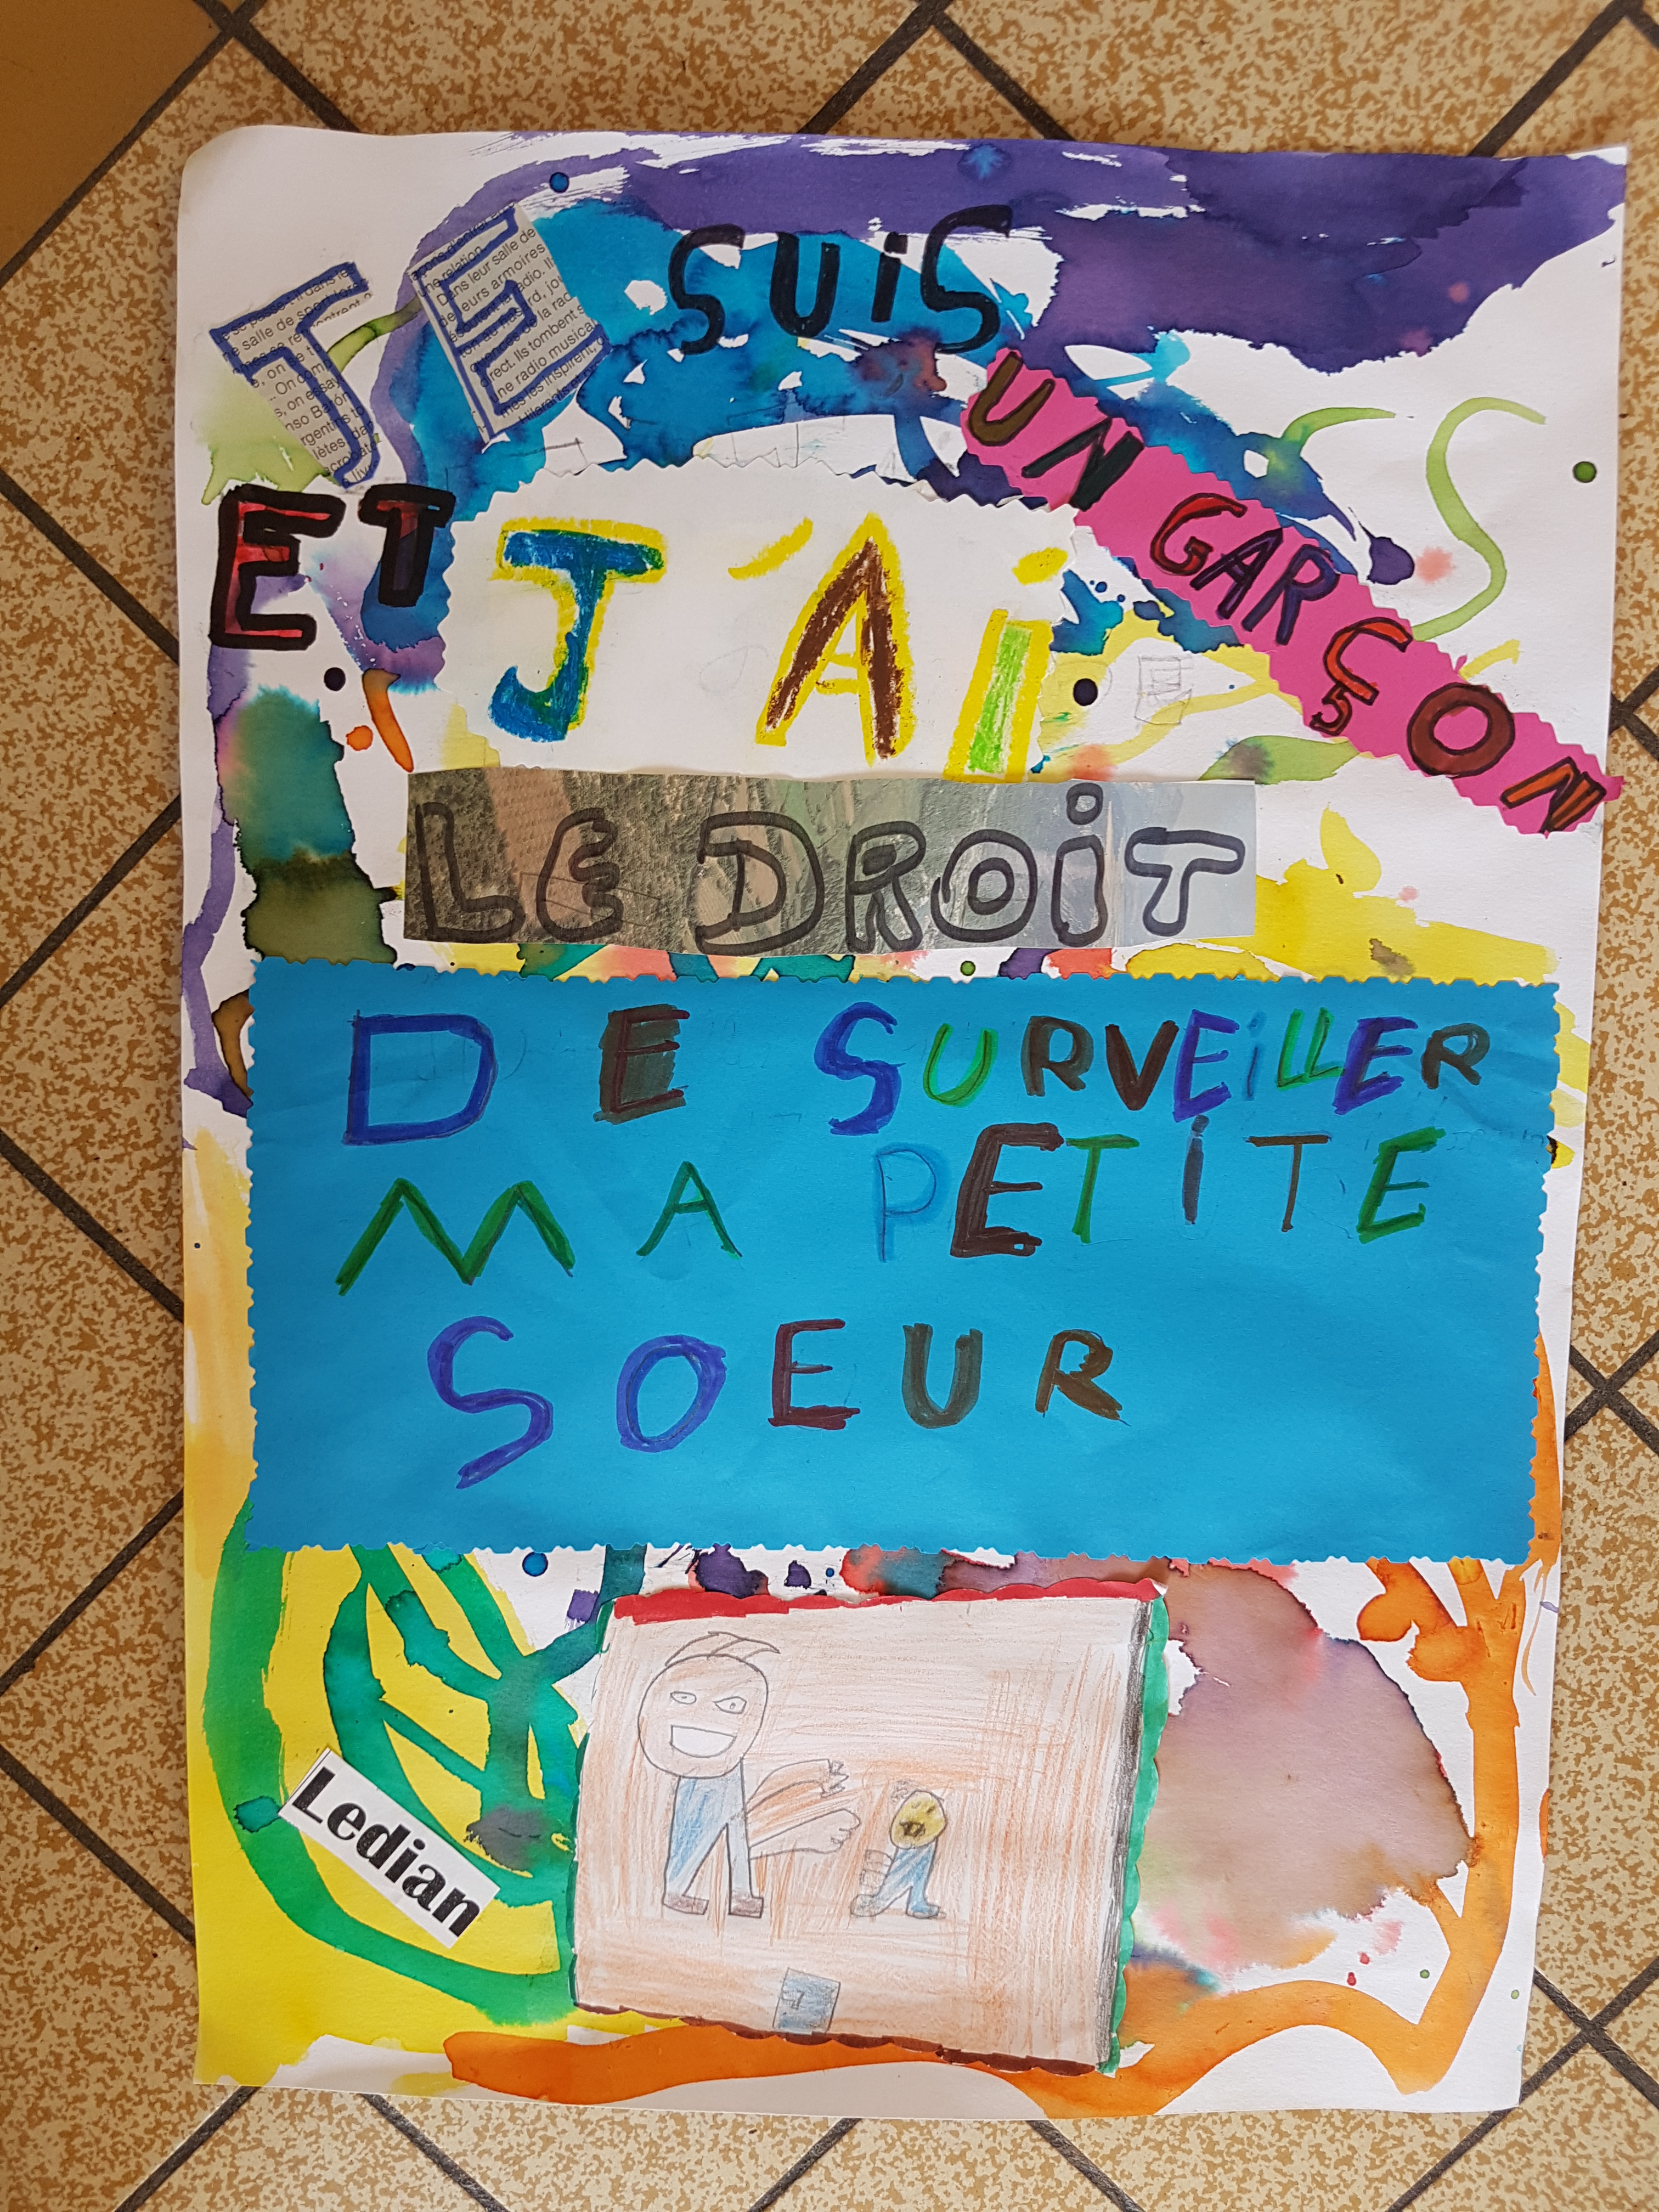 JE SUiS
UN GARÇON
ET J'Ai
LE DROiT
DE SURVEiLLER
MA PETiTE
SOEUR
Ledian